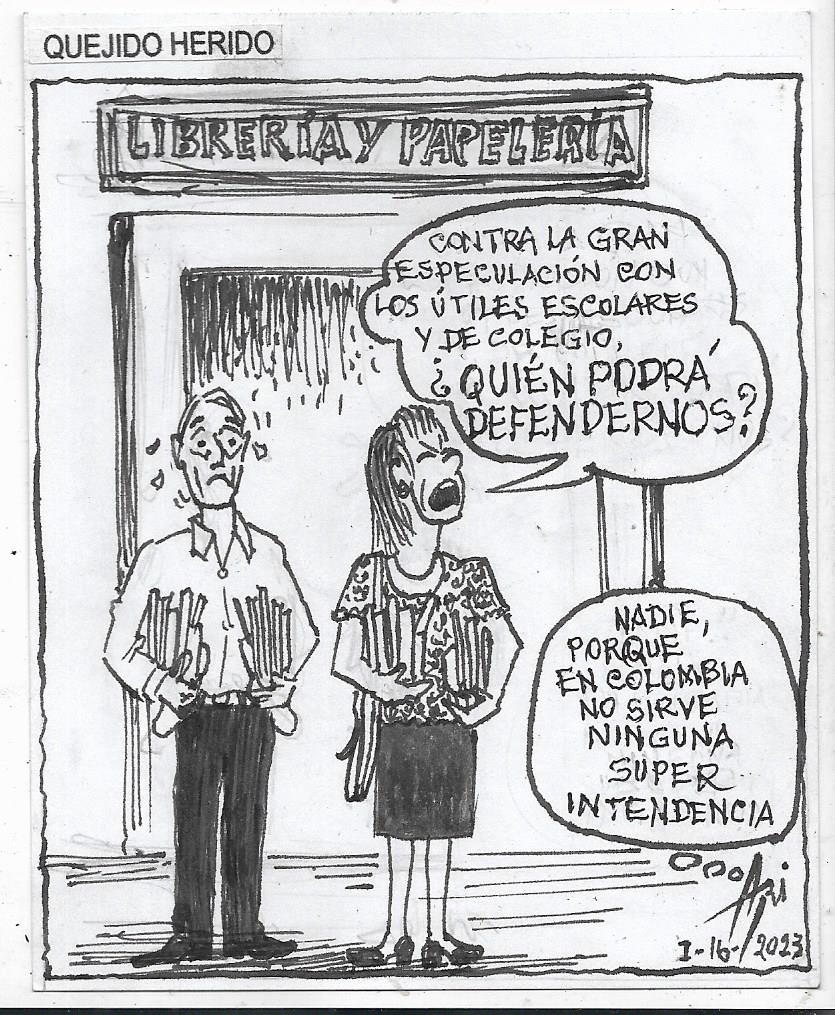 QUEJIDO HERIDO
LIBRERÍA Y PAPELERÍA
CONTRA LA GRAN
ESPECULACIÓN CON
LOS ÚTILES ESCOLARES
Y DE COLEGIO,
¿QUIÉN PODRÁ
DEFENDERNOS?
NADIE,
PORQUE
EN COLOMBIA
NO SIRVE
NINGUNA
SUPER
INTENDENCIA
Ari
I-16-/2023